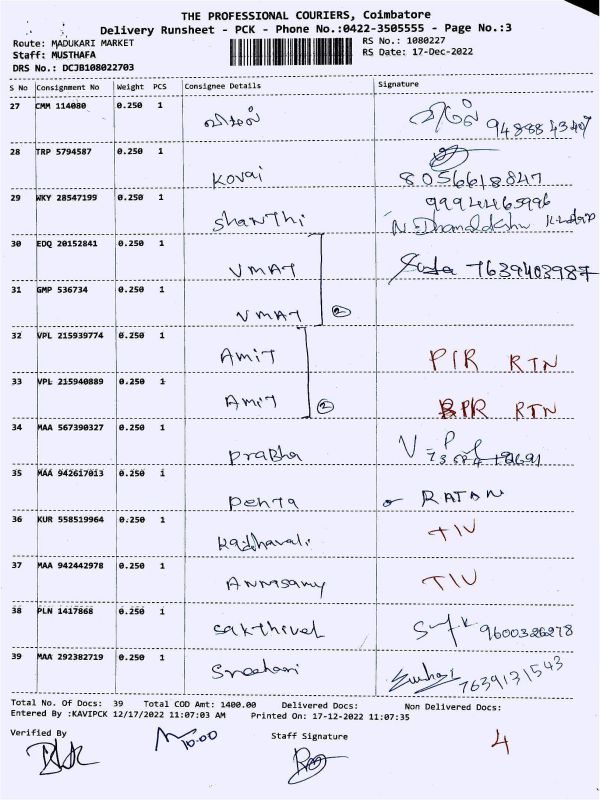 THE PROFESSIONAL COURIERS, Coimbatore
Delivery Runsheet - PCK - Phone No.:0422-3505555 - Page No.:3
Route: MADUKARI MARKET RS No.: 1080227
Staff: MUSTHAFA RS Date: 17-Dec-2022
DRS No.: DCJB108022703
S No Consignment No Weight PCS Consignee Details Signature
27 CMM 114080 0.250 1
28 TRP 5794587 0.250 1 Kovai 8056618847
29 WKY 28547199 0.250 1 Shanthi 9994465996
30 EDQ 20152841 0.250 1 VMAT 7639403987
31 GMP 536734 0.250 1 VMAT 2
32 VPL 215939774 0.250 1 Amit PIR RTN
33 VPL 215940889 0.250 1 Amit 2 PR RTN
34 MAA 567390327 0.250 1 Prabha
35 MAA 942617013 0.250 1 Penta RATAN
36 KUR 558519964 0.250 1 TIV
37 MAA 942442978 0.250 1 Annasamy TIV
38 PLN 1417868 0.250 1 Sakthivel 9600326278
39 MAA 292382719 0.250 1 Sreehari 7639131543
Total No. Of Docs: 39 Total COD Amt: 1400.00 Delivered Docs: Non Delivered Docs:
Entered By :KAVIPCK 12/17/2022 11:07:03 AM Printed On: 17-12-2022 11:07:35
Verified By 10.00 Staff Signature 4